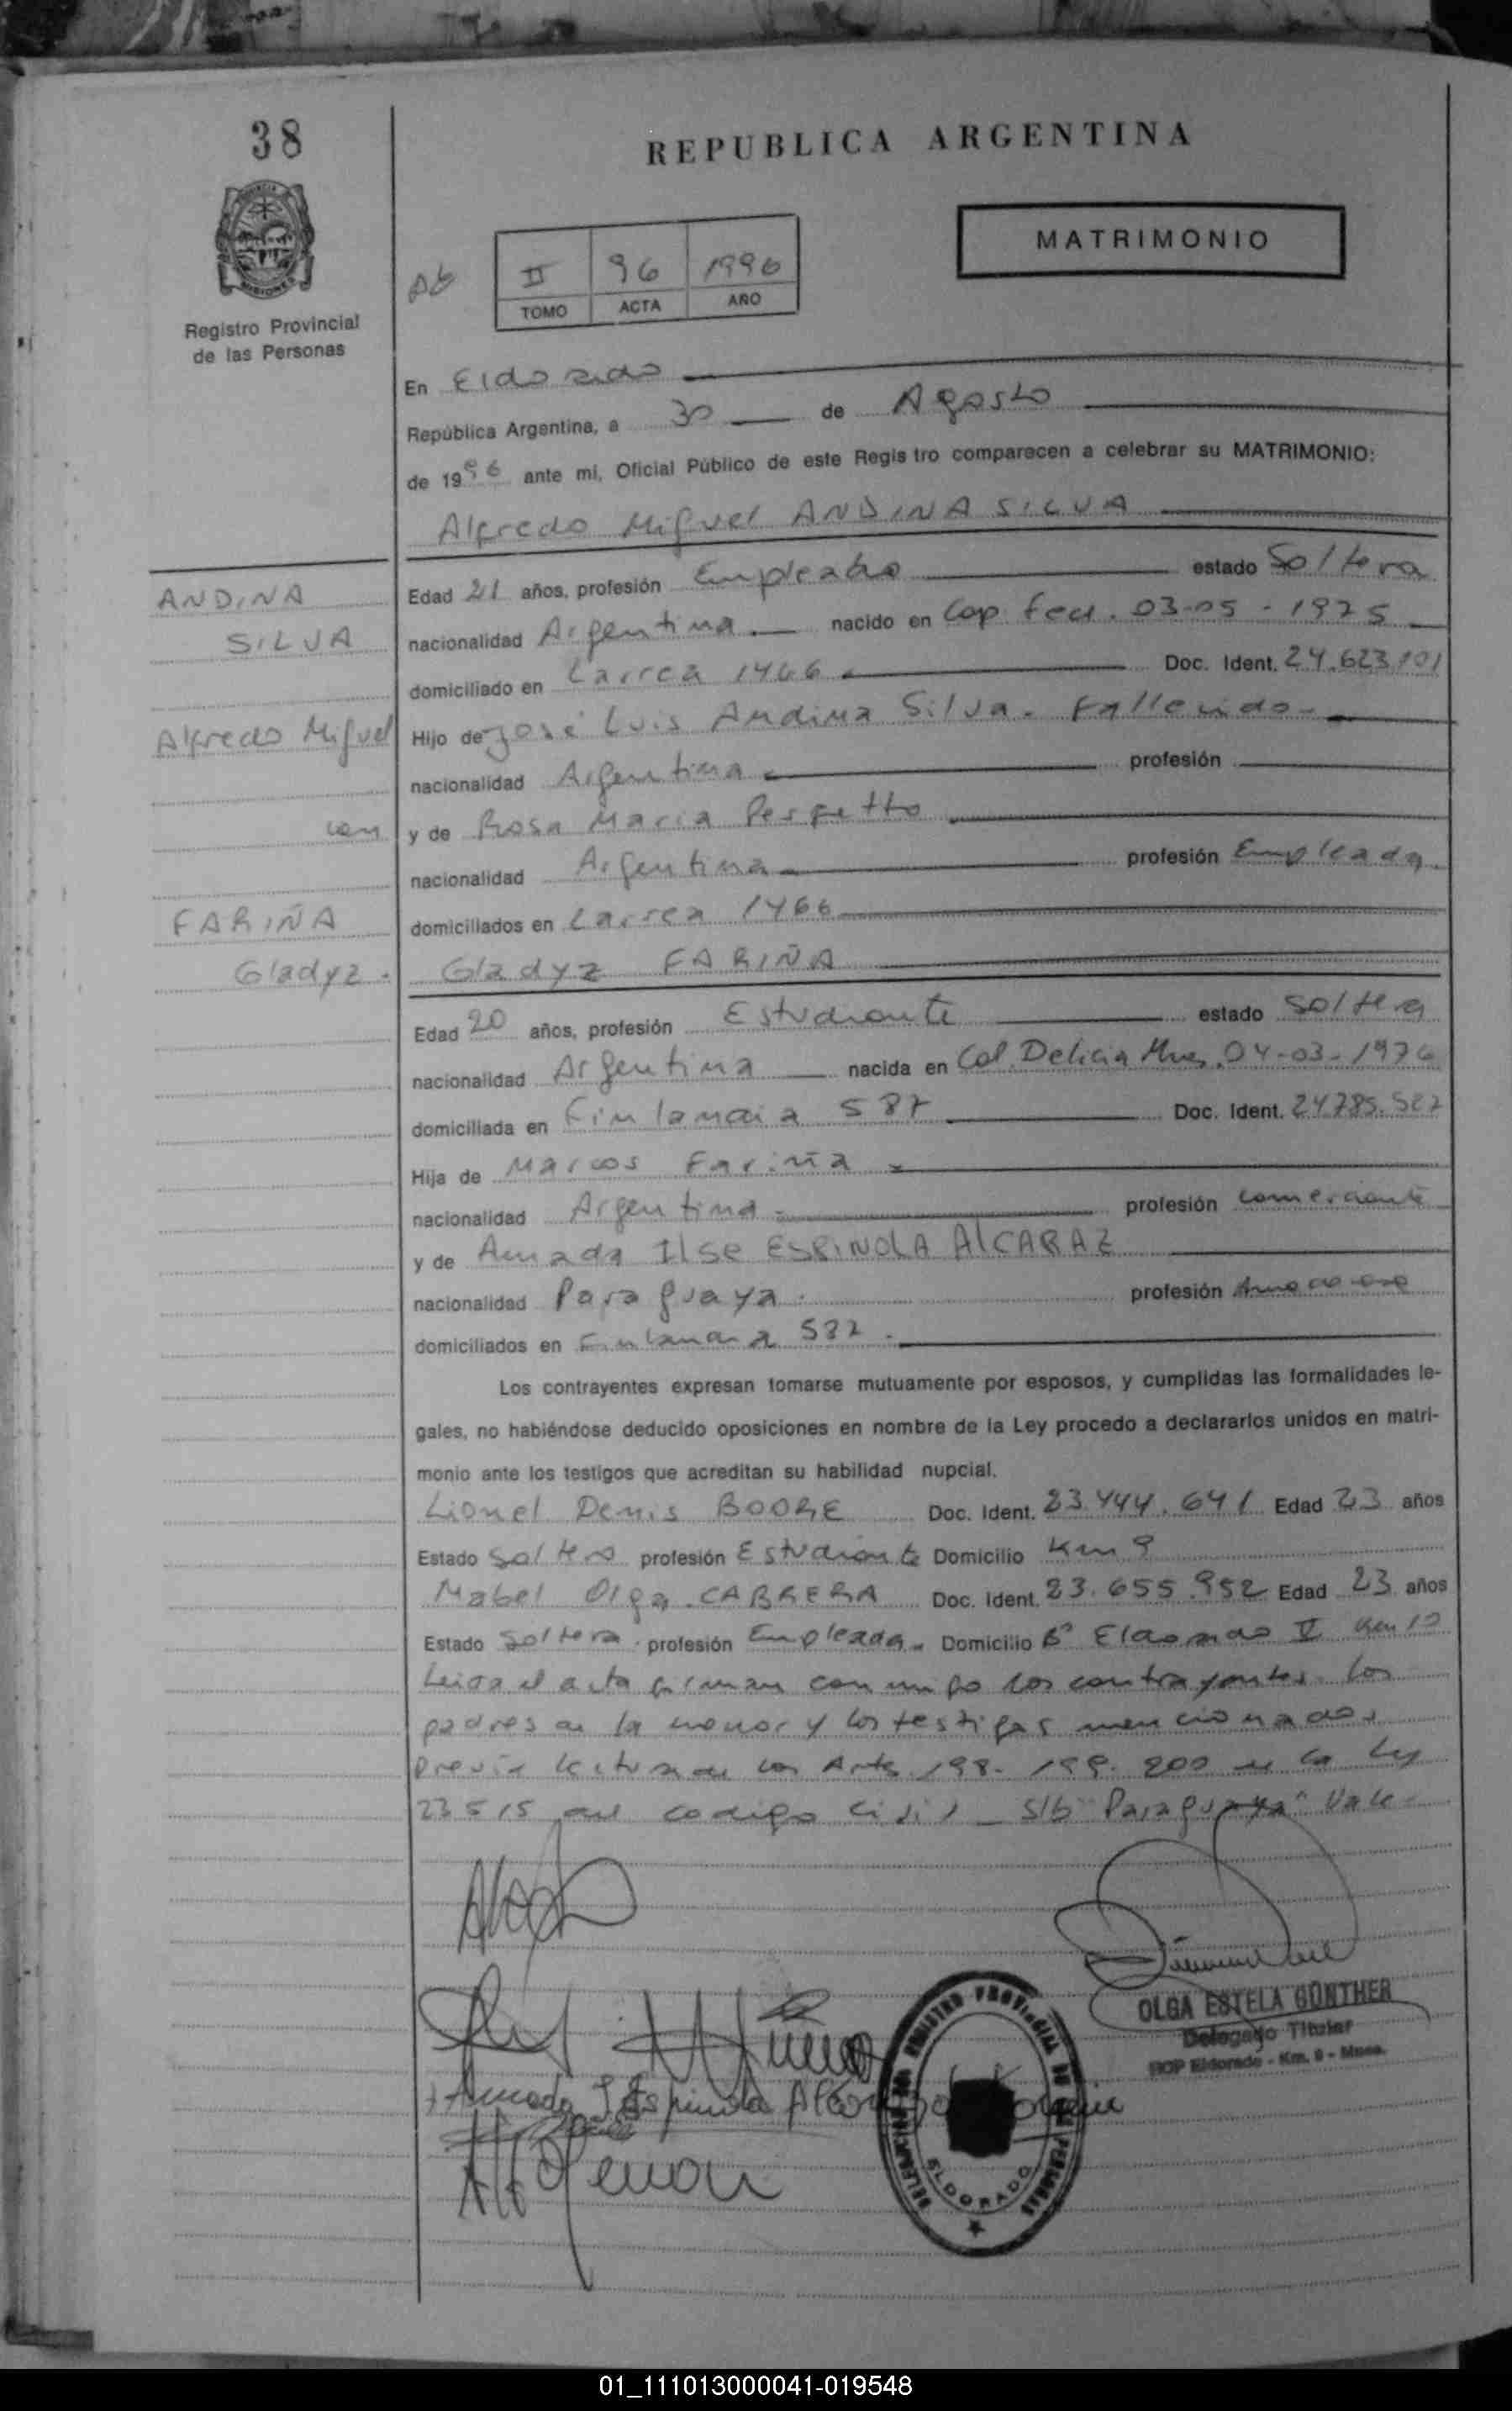 38
REPUBLICA ARGENTINA
MATRIMONIO
II 96 1996
TOMO ACTA AÑO
Registro Provincial
de las Personas
En Eldorado
República Argentina, a 30 de Agosto
de 1996 ante mí, Oficial Público de este Registro comparecen a celebrar su MATRIMONIO:
Alfredo Miguel ANDINA SILVA
ANDINA
SILVA
Alfredo Miguel
con
FARIÑA
Gladyz.
Edad 21 años, profesión Empleado estado Soltera
nacionalidad Argentina nacido en Cap. Fed. 03-05-1975
domiciliado en Larrea 1466 Doc. Ident. 24.623.101
Hijo de José Luis Andina Silva. Fallecido
nacionalidad Argentina profesión
y de Rosa Maria Perfetto
nacionalidad Argentina profesión Empleada.
domiciliados en Larrea 1466
Gladyz FARIÑA
Edad 20 años, profesión Estudiante estado soltera
nacionalidad Argentina nacida en Col. Delicia Mnes. 04-03-1976
domiciliada en Finlandia 587 Doc. Ident. 24.785.527
Hija de Marcos Fariña
nacionalidad Argentina profesión comerciante
y de Amada Ilse ESPINOLA AlCARAZ
nacionalidad Paraguaya. profesión
domiciliados en Finlandia 587.
Los contrayentes expresan tomarse mutuamente por esposos, y cumplidas las formalidades le-
gales, no habiéndose deducido oposiciones en nombre de la Ley procedo a declararlos unidos en matri-
monio ante los testigos que acreditan su habilidad nupcial.
Lionel Denis BOORE Doc. Ident. 23.444.641 Edad 23 años
Estado Soltero profesión Estudiante Domicilio Km 9
Mabel Olga CABRERA Doc. Ident. 23.655.952 Edad 23 años
Estado Soltera profesión Empleada. Domicilio B° Eldorado V Km 10
Leida el acta firman conmigo los contrayentes. los
padres de la menor y los testigos mencionados
previa lectura de los Arts. 198. 199. 200 de la Ley
23515 del codigo Civil _ S/b "Paraguaya" Vale
OLGA ESTELA GÜNTHER
Delegado Titular
RCP Eldorado - Km. 9 - Mnes.
Amada I Espinola
ELDORADO
01_111013000041-019548